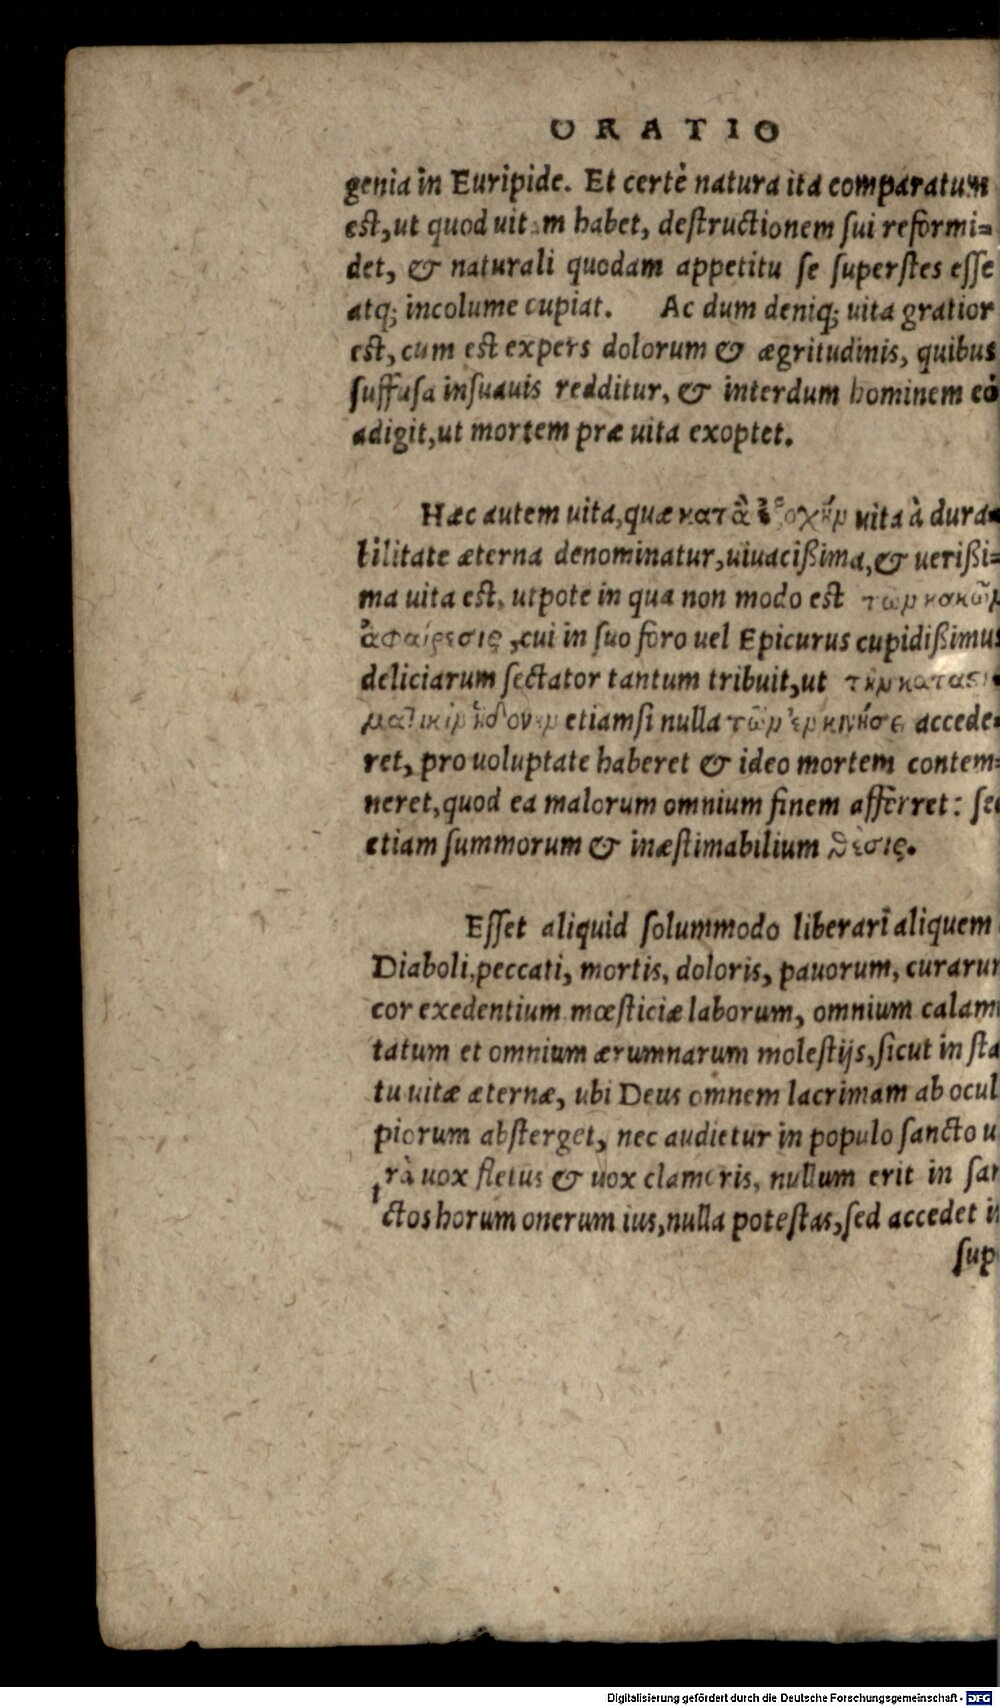 ORATIO
genia in Euripide. Et certè natura ita comparatum
est, ut quod uitam habet, destructionem sui reformi=
det, & naturali quodam appetitu se superstes esse
atq; incolume cupiat. Ac dum deniq; uita gratior
est, cum est expers dolorum & ægritudinis, quibus
suffusa insuauis redditur, & interdum hominem eò
adigit, ut mortem præ uita exoptet.
Hæc autem uita, quæ κατὰ ἐξοχὴν uita à dura
bilitate æterna denominatur, uiuacißima, & uerißi=
ma uita est, utpote in qua non modo est τῶν κακῶν
ἀφαίρεσις, cui in suo foro uel Epicurus cupidißimus
deliciarum sectator tantum tribuit, ut τὴν
etiamsi nulla τῶν accede=
ret, pro uoluptate haberet & ideo mortem contem=
neret, quod ea malorum omnium finem afferret: sed
etiam summorum & inæstimabilium θέσις.
Esset aliquid solummodo liberari aliquem
Diaboli, peccati, mortis, doloris, pauorum, curarum
cor exedentium mœsticiæ laborum, omnium calami
tatum et omnium ærumnarum molestijs, sicut in sta
tu uitæ æternæ, ubi Deus omnem lacrimam ab ocul
piorum absterget, nec audietur in populo sancto u
rà uox fletus & uox clamoris, nullum erit in san
ctos horum onerum ius, nulla potestas, sed accedet in
sup
Digitalisierung gefördert durch die Deutsche Forschungsgemeinschaft - DFG